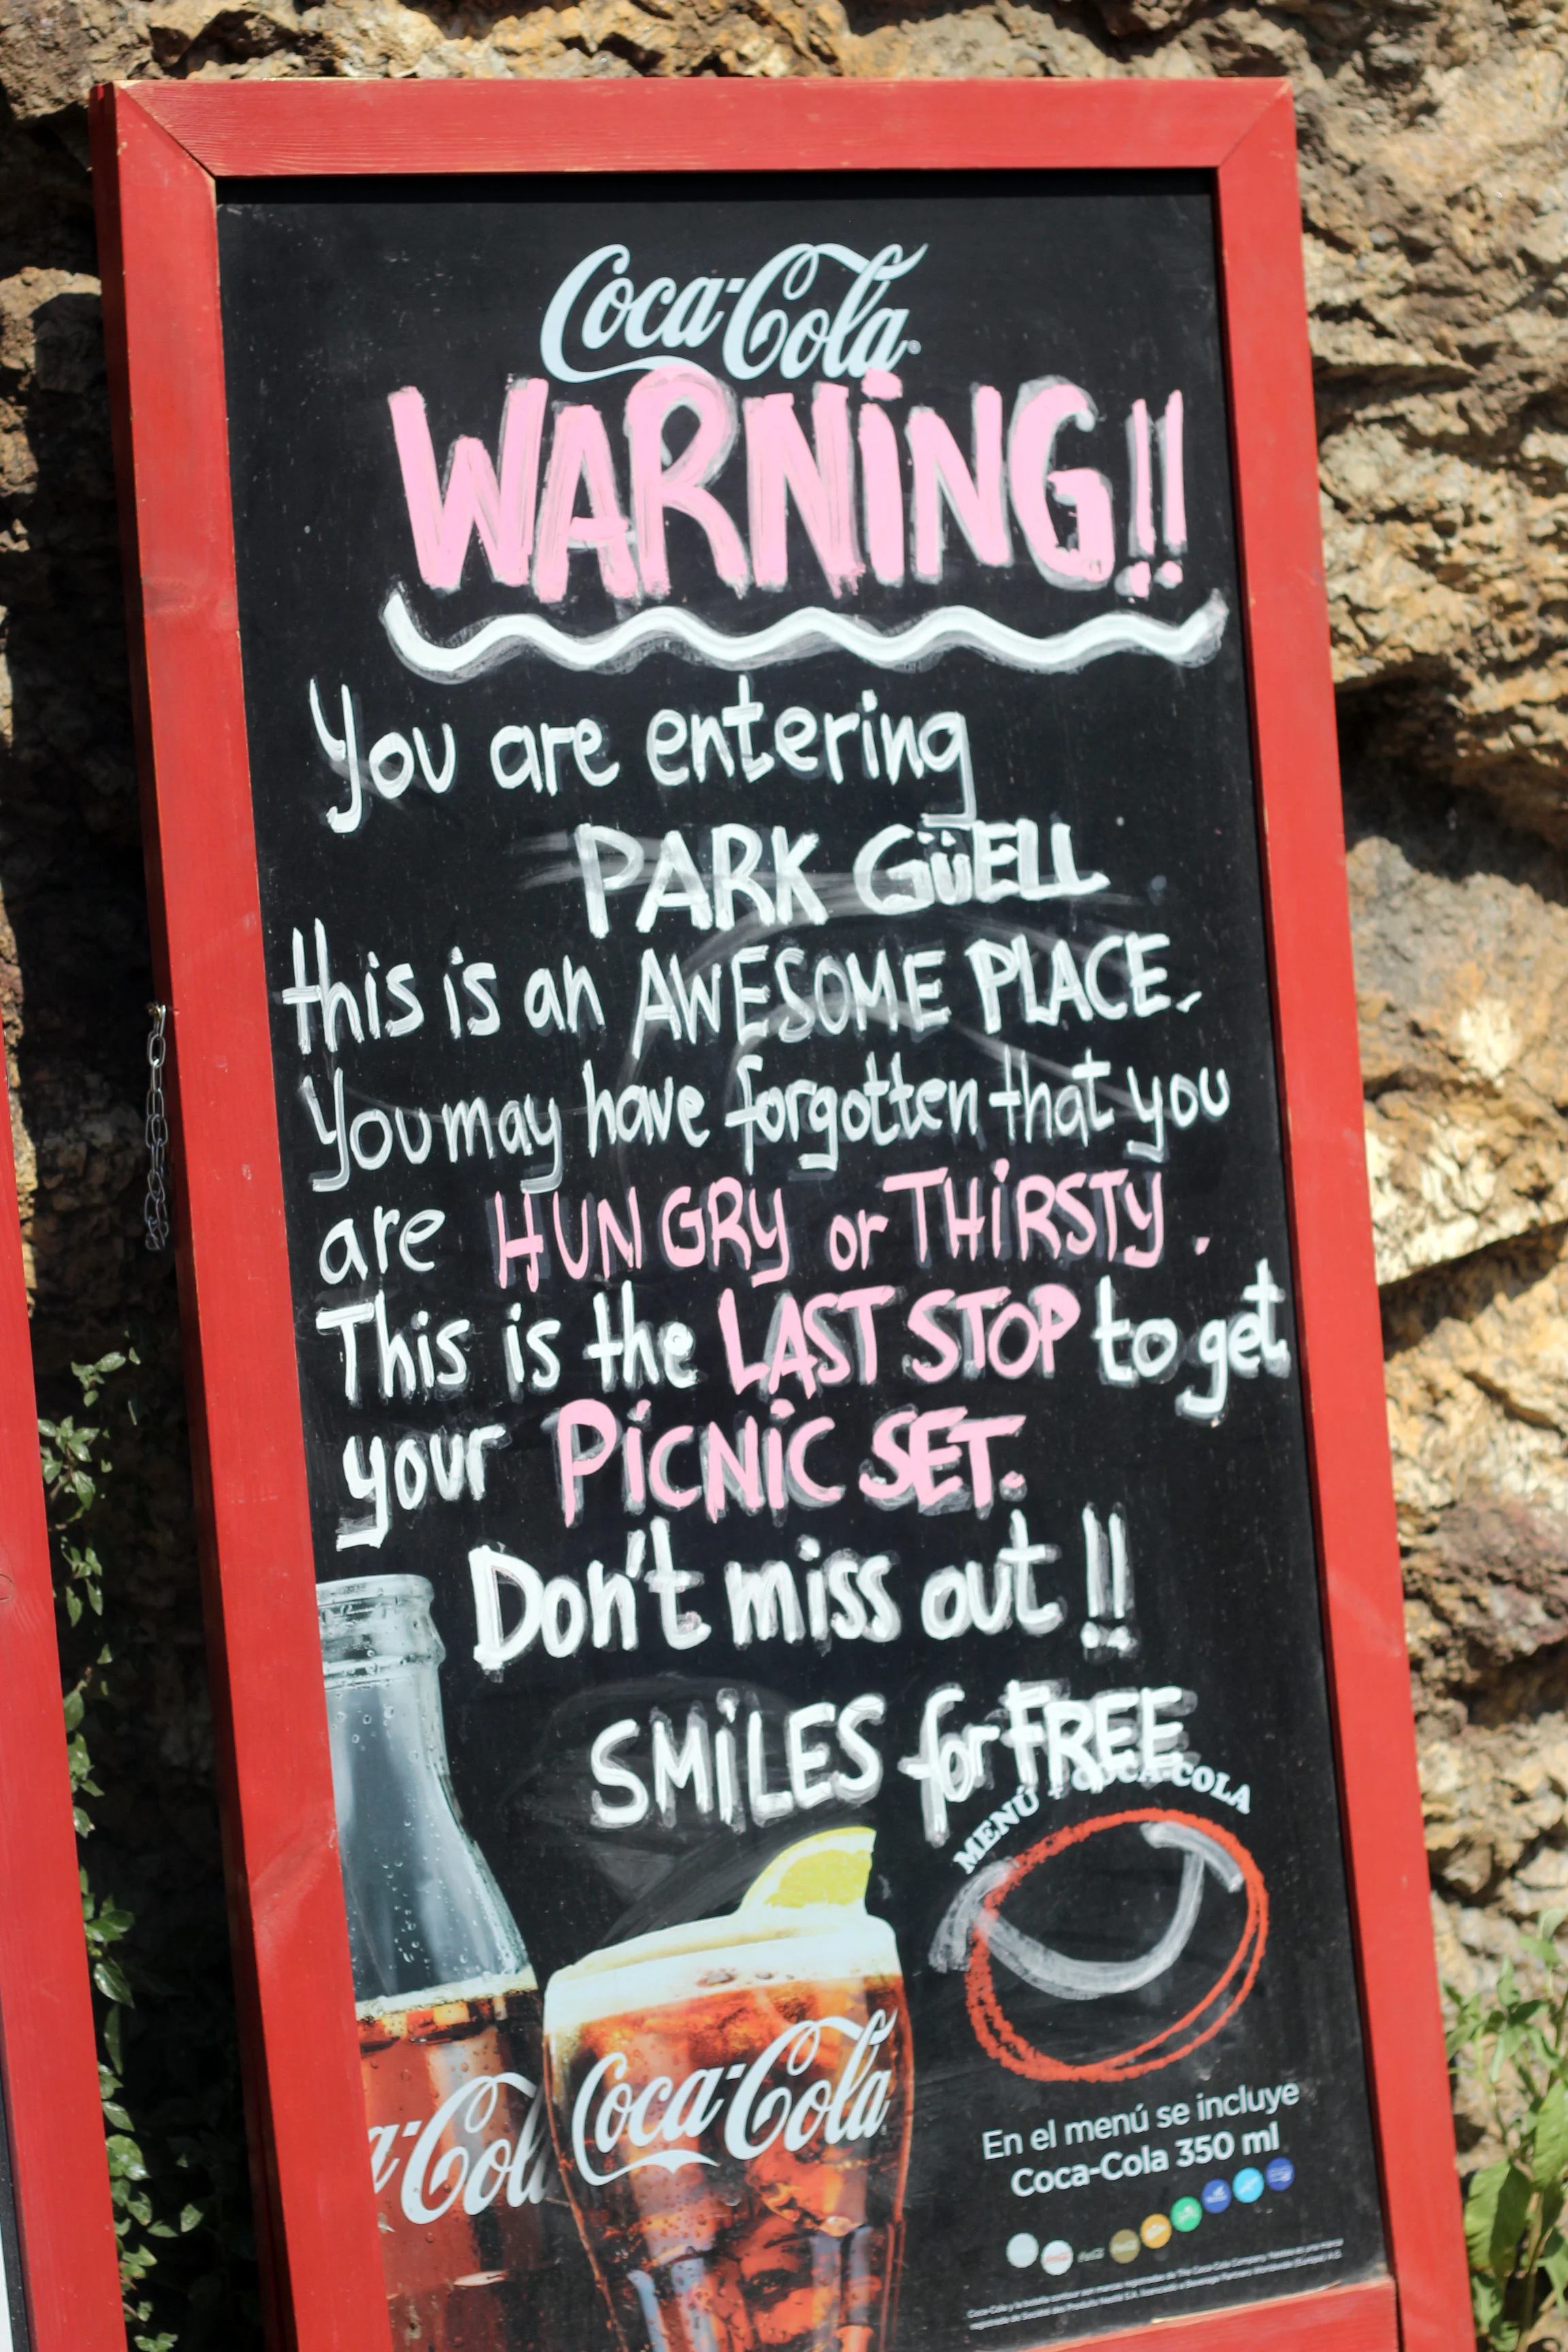 Coca-Cola
WARNiNG!!
You are entering
PARK GüELL
this is an AWESOME PLACE.
You may have forgotten that you
are HUNGRY or THiRSTY.
This is the LAST STOP to get
your PiCNiC SET.
Don't miss out!!
SMiLES for FREE
MENÚ COCA-COLA
a-Col
Coca-Cola
En el menú se incluye
Coca-Cola 350 ml